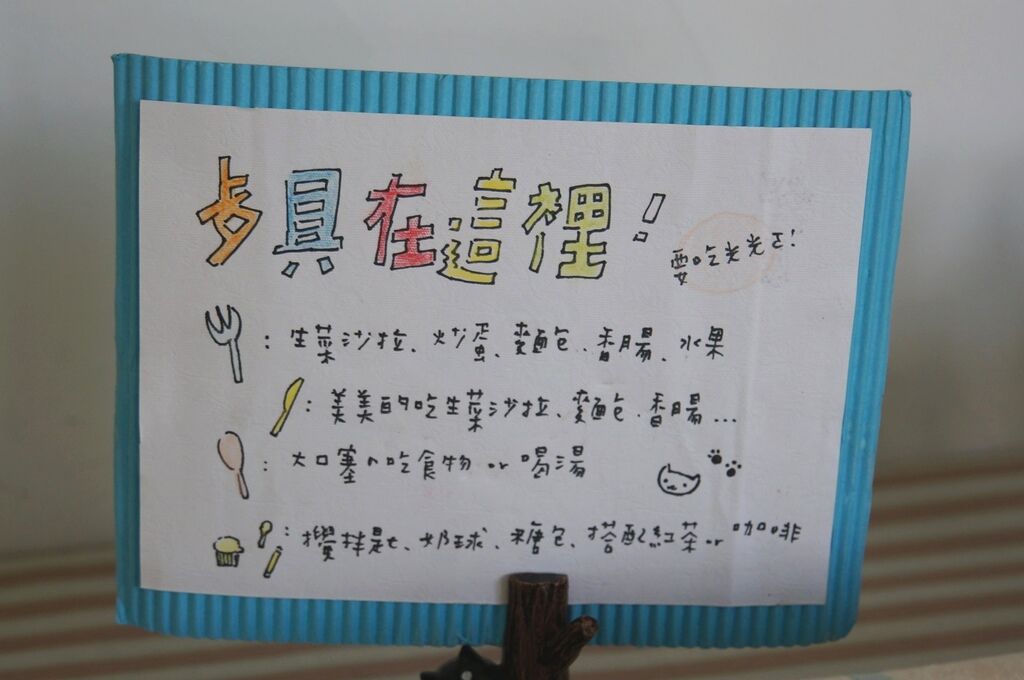 步具在這裡！
要吃光光ㄛ!
：生菜沙拉、炒蛋、麵包、香腸、水果
：美美的吃生菜沙拉、麵包、香腸...
：大口塞的吃食物 or 喝湯
：攪拌匙、奶球、糖包、搭配紅茶 or 咖啡